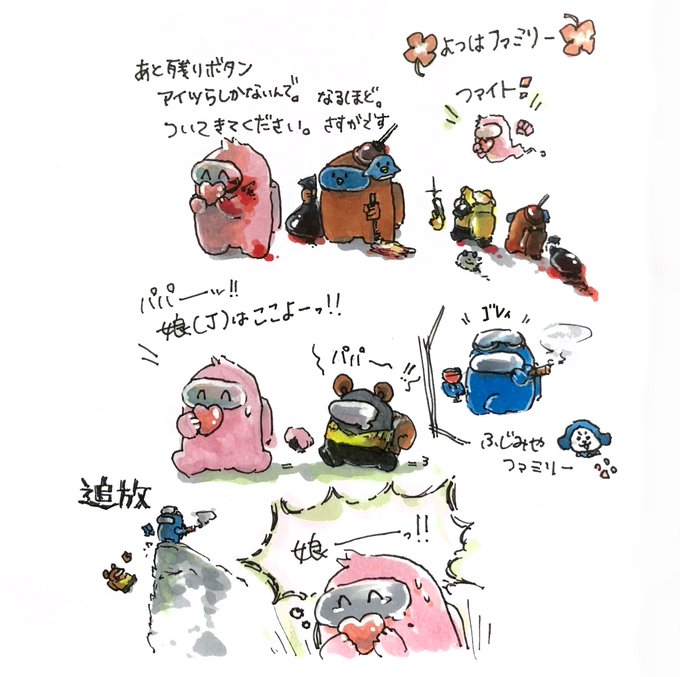 よつはファミリー
あと残りボタン
アイツらしかないんで。
ついてきてください。
なるほど。
さすがです
ファイト!!
パパーーッ!!
娘(J)はここよーッ!!
パパ〜!!
ふじみや
ファミリー
追放
娘ーーっ!!